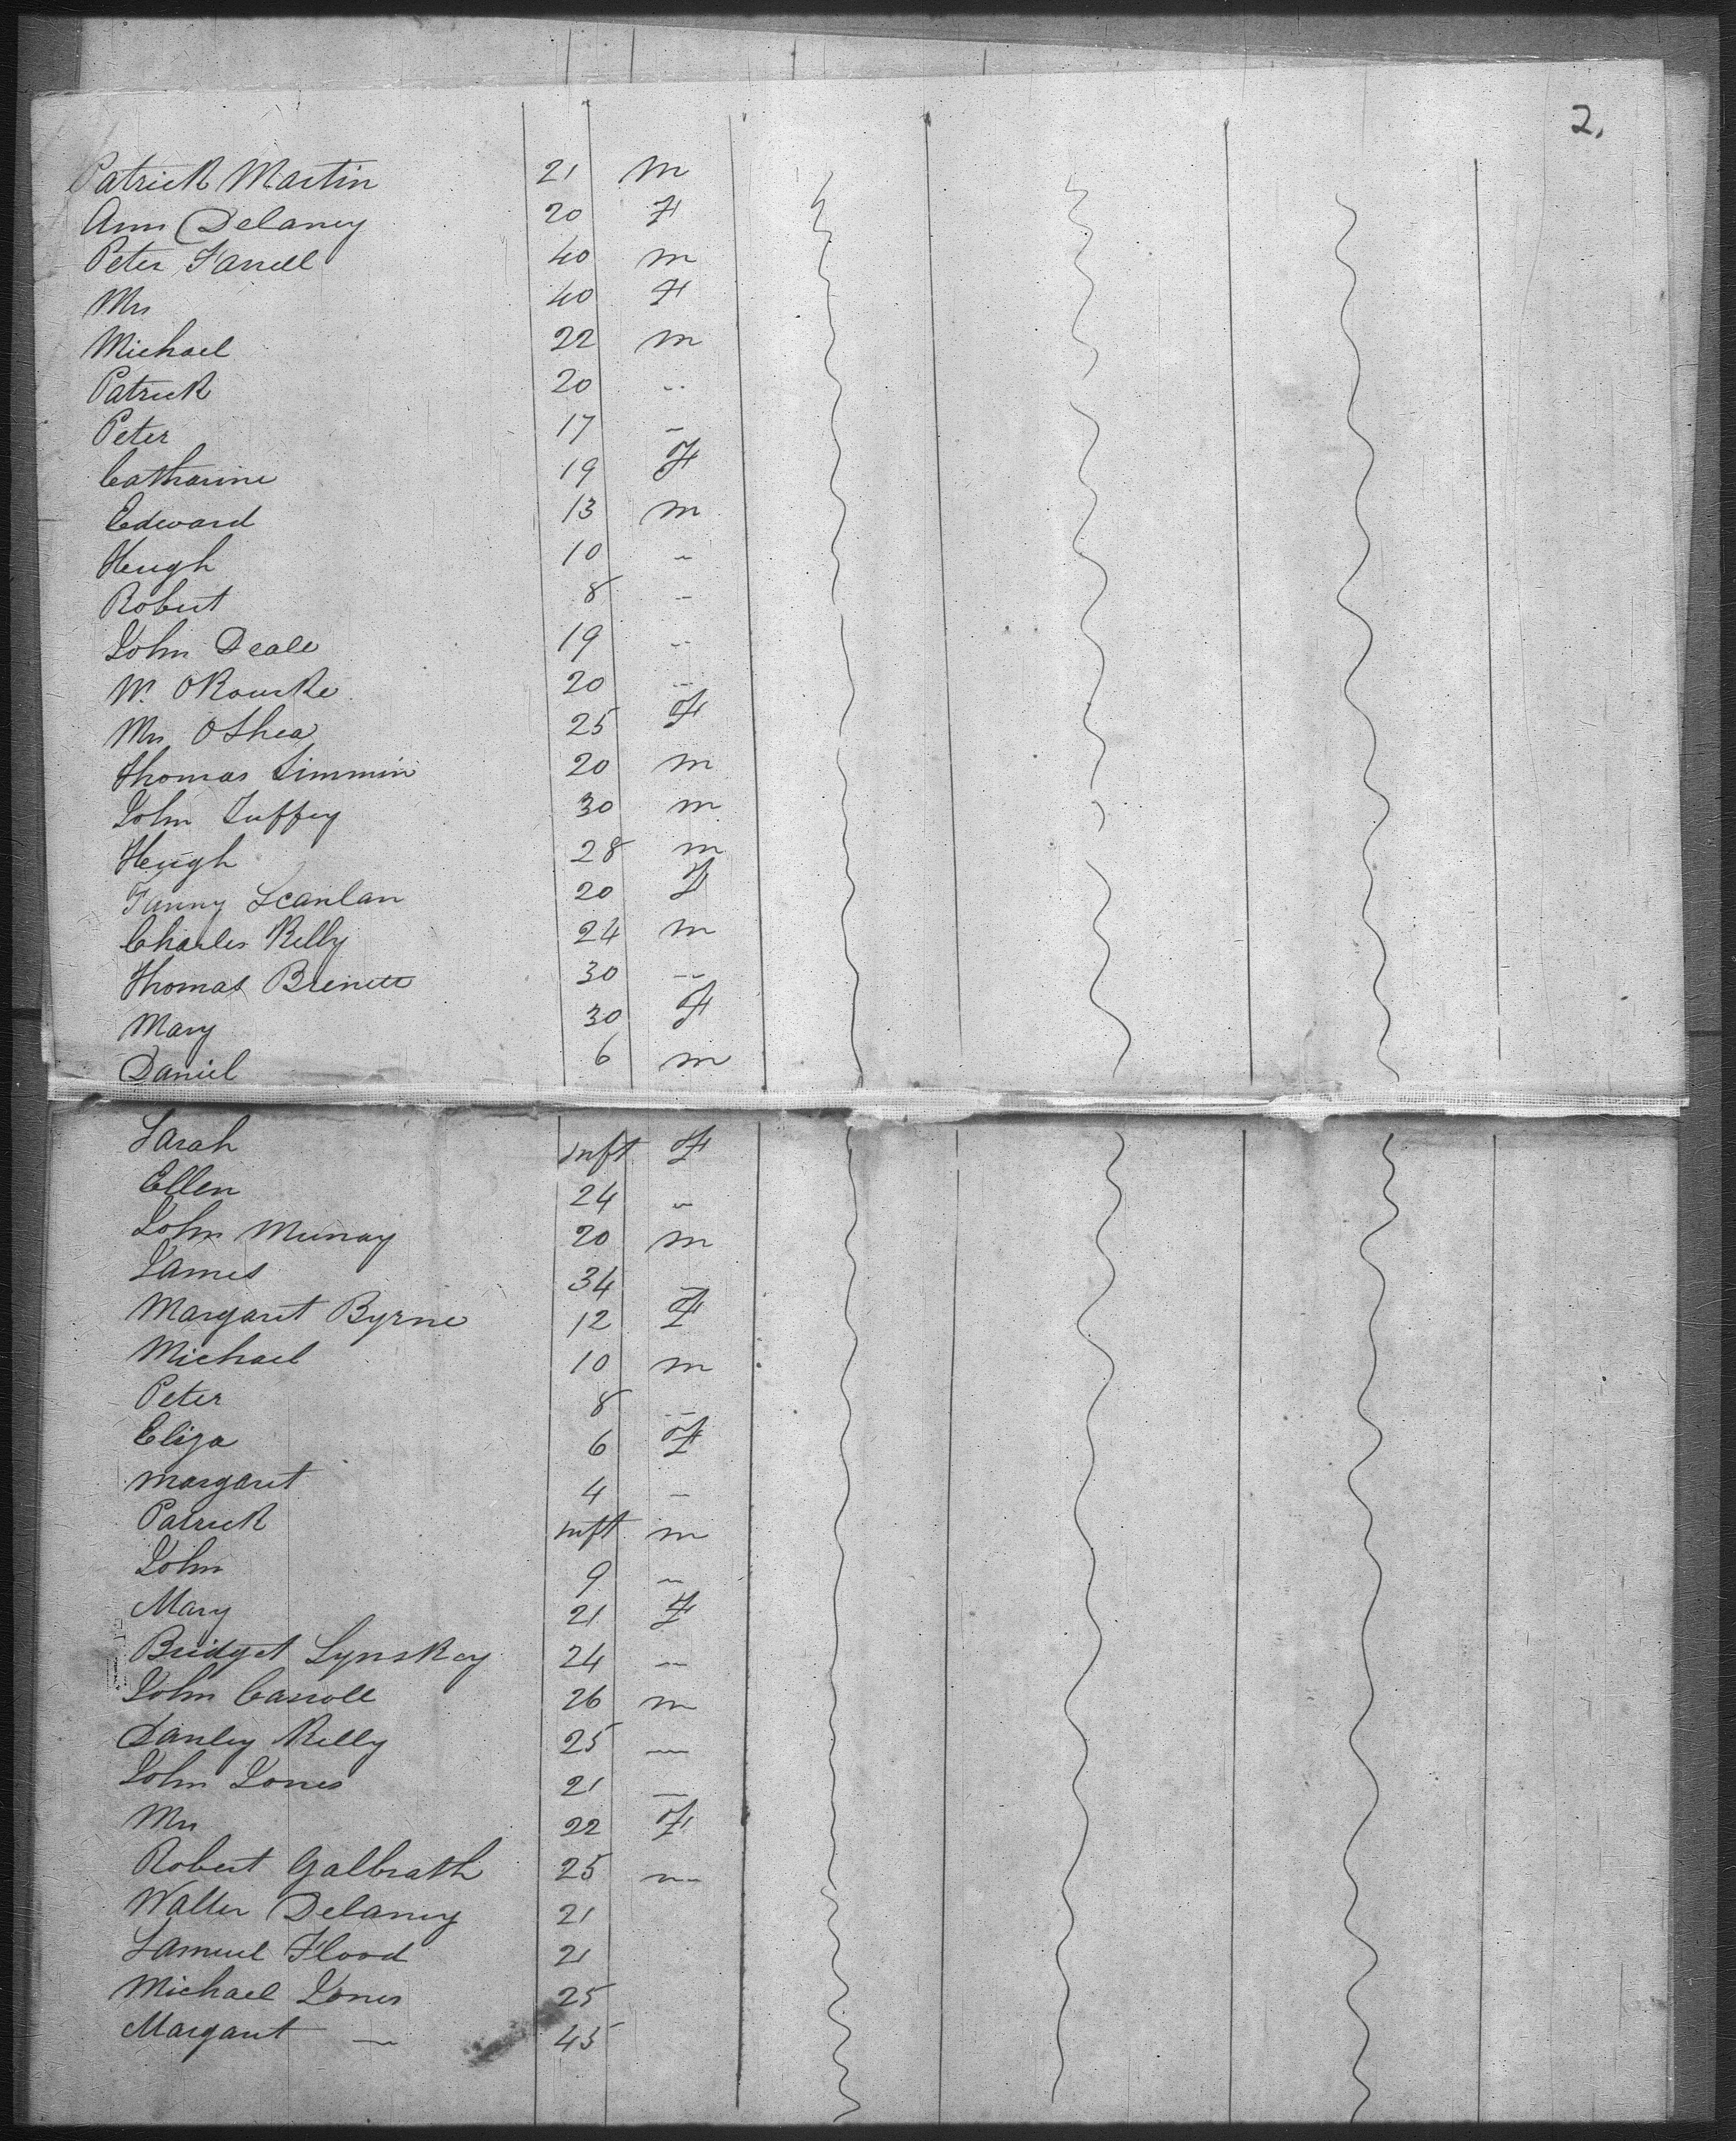 2.
Patrick Martin 21 m
Ann Delaney 20 F
Peter Farrell 40 m
Mrs 40 F
Michael 22 m
Patrick 20 "
Peter 17 "
Catharine 19 F
Edward 13 m
Hugh 10 "
Robert 8 "
John Deale 19 "
W. O Rourke 20 "
Mrs O Shea 25 F
Thomas Simmin 20 m
John Tuffey 30 m
Hugh 28 m
Fanny Scanlan 20 F
Charles Kelly 24 m
Thomas 30 "
Mary 30 F
Daniel 6 m
Sarah Inft F
Ellen 24 "
John Murray 20 m
James 34 "
Margaret Byrne 12 F
Michael 10 m
Peter 8 "
Eliza 6 F
Margaret 4 "
Patrick Inft m
John 9 "
Mary 21 F
Bridget Lynskey 24 "
John Carroll 26 m
Kelly 25 "
John Jones 21 "
Mrs 22 F
Robert Galbrath 25 m
Walter Delaney 21
Samuel Flood 21
Michael Jones 25
Margaret " 45